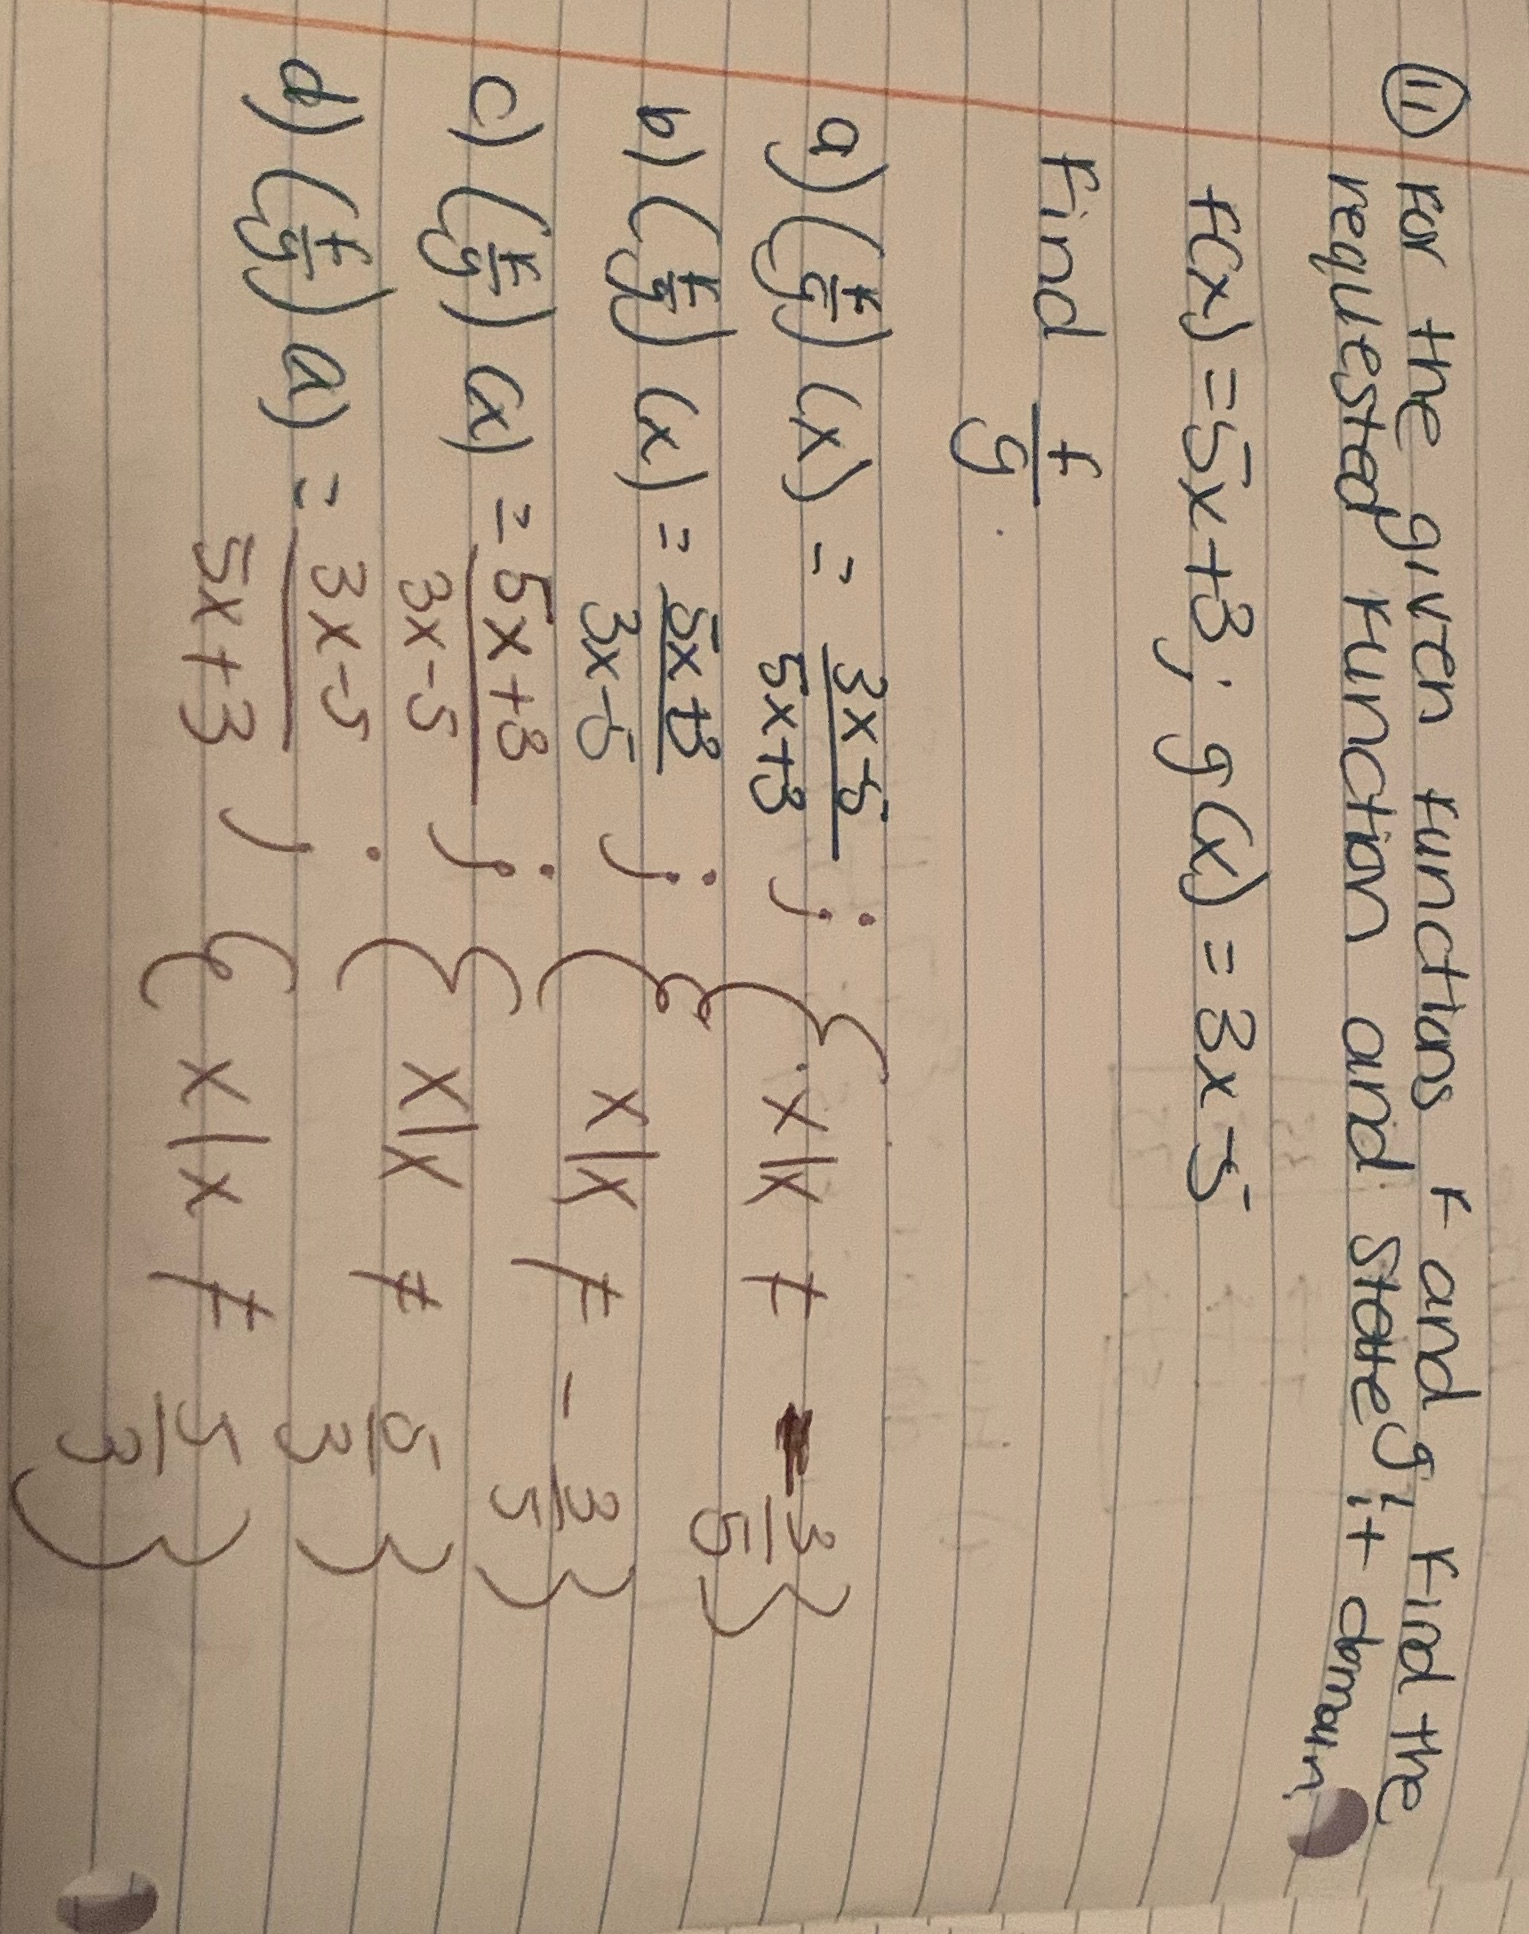 11 For the given functions f and g, find the
requested function and state it domain.
f(x) = 5x+3; g(x) = 3x-5
Find f/g.
a) (f/g)(x) = 3x-5/5x+3 ; {x|x ≠ 3/5}
b) (f/g)(x) = 5x+3/3x-5 ; {x|x ≠ -3/5}
c) (f/g)(x) = 5x+3/3x-5 ; {x|x ≠ 5/3}
d) (f/g)(x) = 3x-5/5x+3 ; {x|x ≠ 5/3}